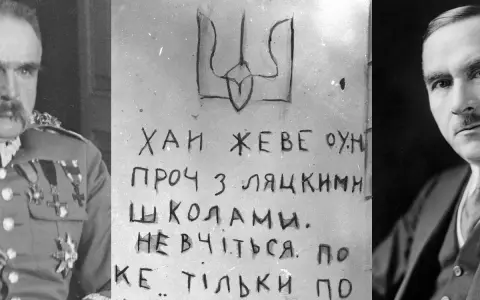 ХАИ ЖЕВЕ ОУН
ПРОЧ З ЛЯЦКИМИ
ШКОЛАМИ.
НЕ ВЧІТЬСЯ ПО
КЕ.. ТІЛЬКИ ПО